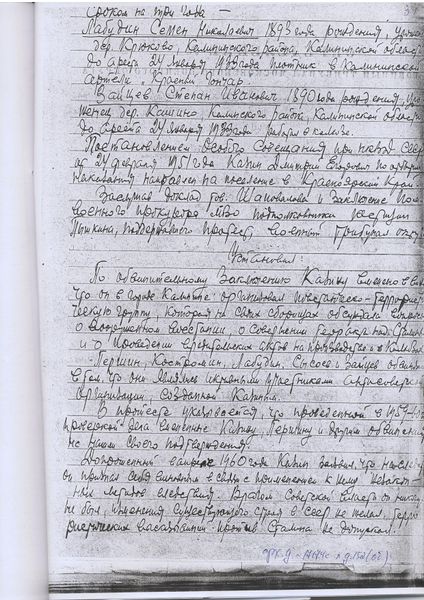 сроком на три года —
Лабудин Семен Николаевич 1893 года рождения,
дер. Крюково, Калининского района, Калининской области
до ареста 24 января 1939 года плотник в Калининской
артели Красный Гончар.
Зайцев Степан Иванович 1890 года рождения,
женец дер. Калинского района, Калининской области
до ареста 24 января 1939 года работал в колхозе.
Постановлением Особого Совещания при НКВД СССР
от 24 февраля 1951 года Капин Дмитрий Егорович по отбытии
наказания направлен на поселение в Красноярский край.
Заслушав доклад тов. Шаповалова и заключение
военного прокурора подполковника юстиции
Пышкина, поддержавшего протест, военный трибунал
Установил:
По обвинительному заключению Капину вменено в вину
что он в городе Калинине организовал повстанческо-террористи-
ческую группу, которая на своих сборищах обсуждала вопросы
о вооруженном восстании, о совершении теракта над
и о проведении вредительских актов на производстве
Першин, Костромин, Лабудин, Сысоев и Зайцев
в том, что они являлись активными участниками антисоветской
организации, созданной Капиным.
В протесте указывается, что проведенной в
проверкой дела вмененные Капину, Першину и другим обвинения
не нашли своего подтверждения.
Допрошенный в апреле 1960 года Капин заявил, что на следствии
он признал себя виновным в связи с применением к нему незакон-
ных методов следствия. Врагом Советской власти он никогда
не был, изменения существующего строя в СССР не желал, терро-
ристических высказываний против Сталина не допускал.